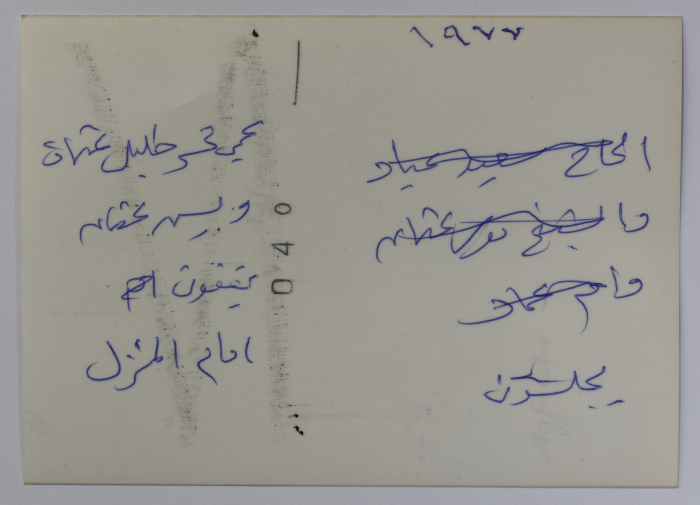 ١٩٧٧
الحاج سعيد عياد
والشيخ نمر عثمان
وام عماد
يجلسون
عمي محمد خليل عثمان
ويسر عثمان
يقفون
امام المنزل
040